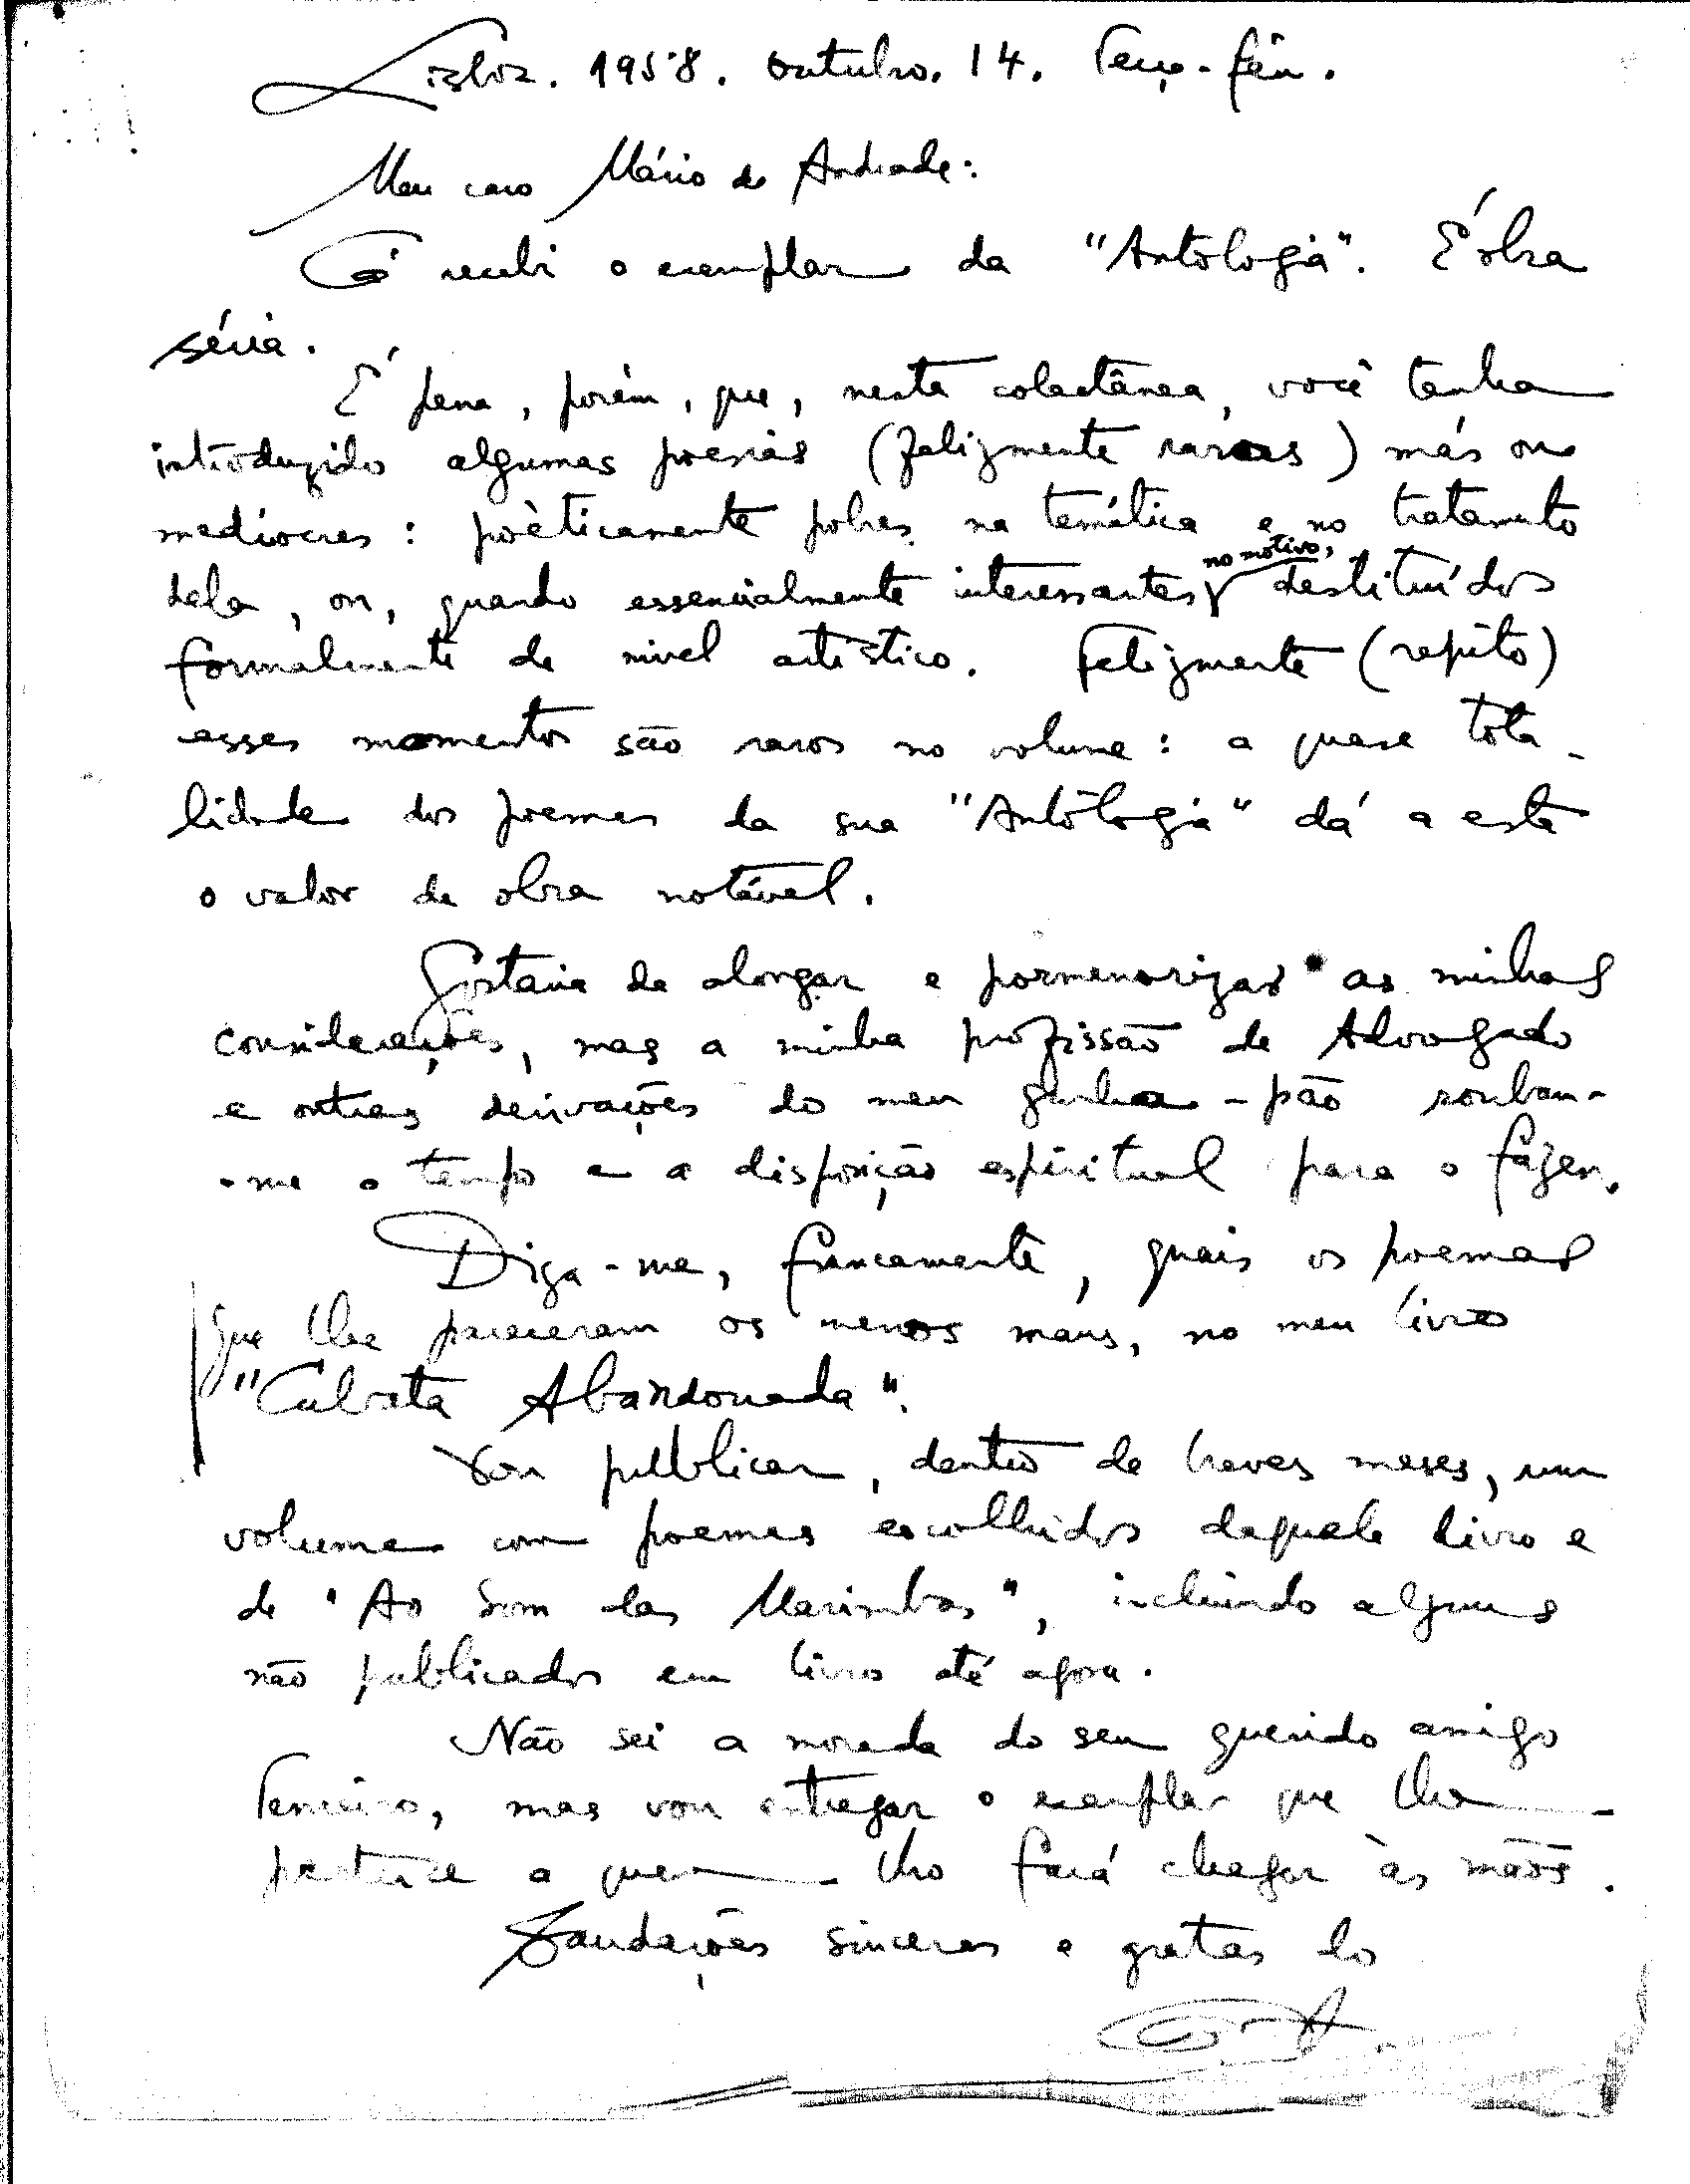 Lisboa. 1958. Outubro. 14. Terça-feira.
Meu caro Mário de Andrade:
Cá recebi o exemplar da "Antologia". É obra
séria.
É pena, porém, que, nesta colectânea, você tenha
introduzido algumas poesias (felizmente raras) más ou
medíocres: poèticamente pobres na temática e no tratamento
dela, ou, quando essencialmente interessantes no motivo, destituídos
formalmente de nível artístico. Felizmente (repito)
esses momentos são raros no volume: a quase tota-
lidade dos poemas da sua "Antologia" dá a esta
o valor de obra notável.
Gostaria de alongar e pormenorizar as minhas
considerações, mas a minha profissão de Advogado
e outras derivações do meu ganha-pão roubam-
-me o tempo e a disposição espiritual para o fazer.
Diga-me, francamente, quais os poemas
que lhe pareceram os menos maus, no meu livro
"Cubata Abandonada".
Vou publicar, dentro de breves meses, um
volume com poemas escolhidos daquele livro e
de "Ao Som das Marimbas", incluindo alguns
não publicados em livro até agora.
Não sei a morada do seu querido amigo
Tenreiro, mas vou entregar o exemplar que lhe
pertence a quem lho fará chegar às mãos.
Saudações sinceras e gratas do